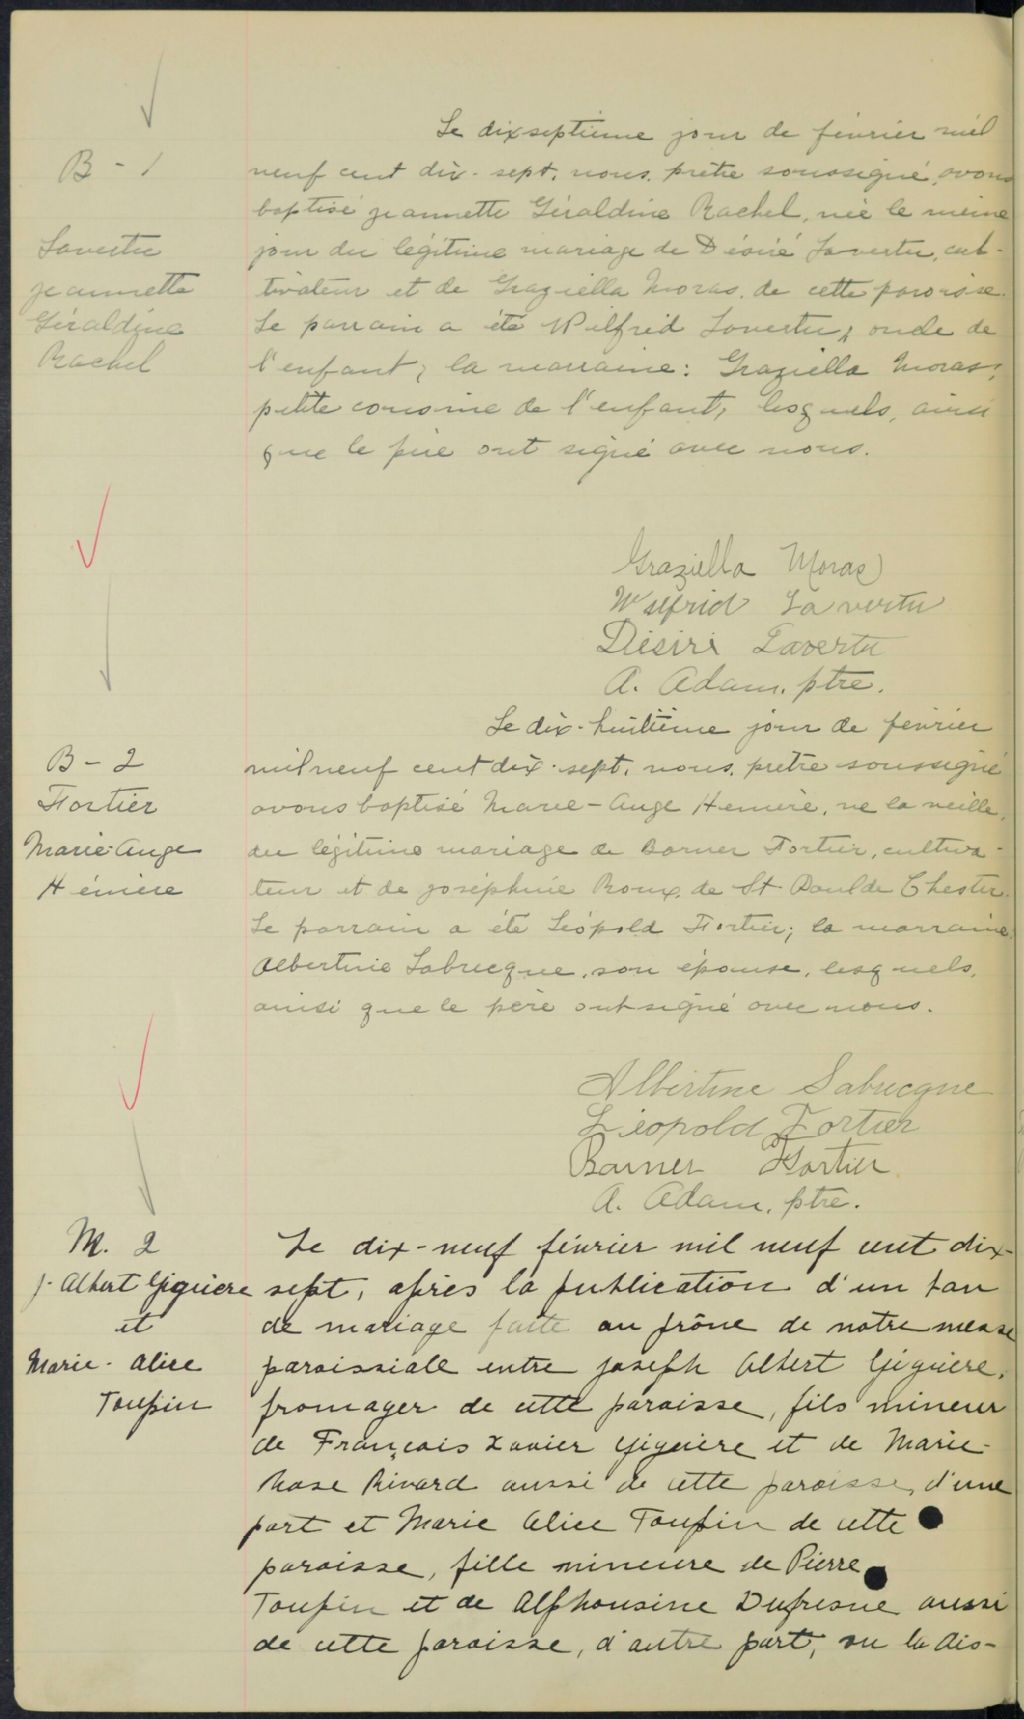 B - 1
Lavertu
Jeannette
Géraldine
Rachel
Le dixseptième jour de février mil
neuf cent dix-sept, nous, prêtre soussigné, avons
baptisé Jeannette Géraldine Rachel, née le même
jour du légitime mariage de Désiré Lavertu, cul-
tivateur et de Graziella Moras, de cette paroisse.
Le parrain a été Wilfrid Lavertu, oncle de
l'enfant, la marraine: Graziella Moras,
petite cousine de l'enfant, lesquels, ainsi
que le père ont signé avec nous.
Graziella Moras
Wilfrid Lavertu
Désiré Lavertu
A. Adam, ptre.
B - 2
Fortier
Marie-Ange
Hémère
Le dix-huitième jour de février
mil neuf cent dix-sept, nous, prêtre soussigné
avons baptisé Marie-Ange, née la veille,
du légitime mariage de Barner Fortier, cultiva-
teur et de Joséphine Roux, de St-Paul de Chester.
Le parrain a été Léopold Fortier; la marraine,
Albertine Labrecque, son épouse, lesquels,
ainsi que le père ont signé avec nous.
Albertine Labrecque
Léopold Fortier
Barner Fortier
A. Adam, ptre.
M. 2
J. Albert Giguère
et
Marie-Alice
Toupin
Le dix-neuf février mil neuf cent dix-
sept, après la publication d'un ban
de mariage faite au prône de notre messe
paroissiale entre Joseph Albert Giguère,
fromager de cette paroisse, fils mineur
de François Xavier Giguère et de Marie-
Rose Rivard aussi de cette paroisse, d'une
part et Marie Alice Toupin de cette
paroisse, fille mineure de Pierre
Toupin et de Alphonsine Dufresne aussi
de cette paroisse, d'autre part, vu la dis-